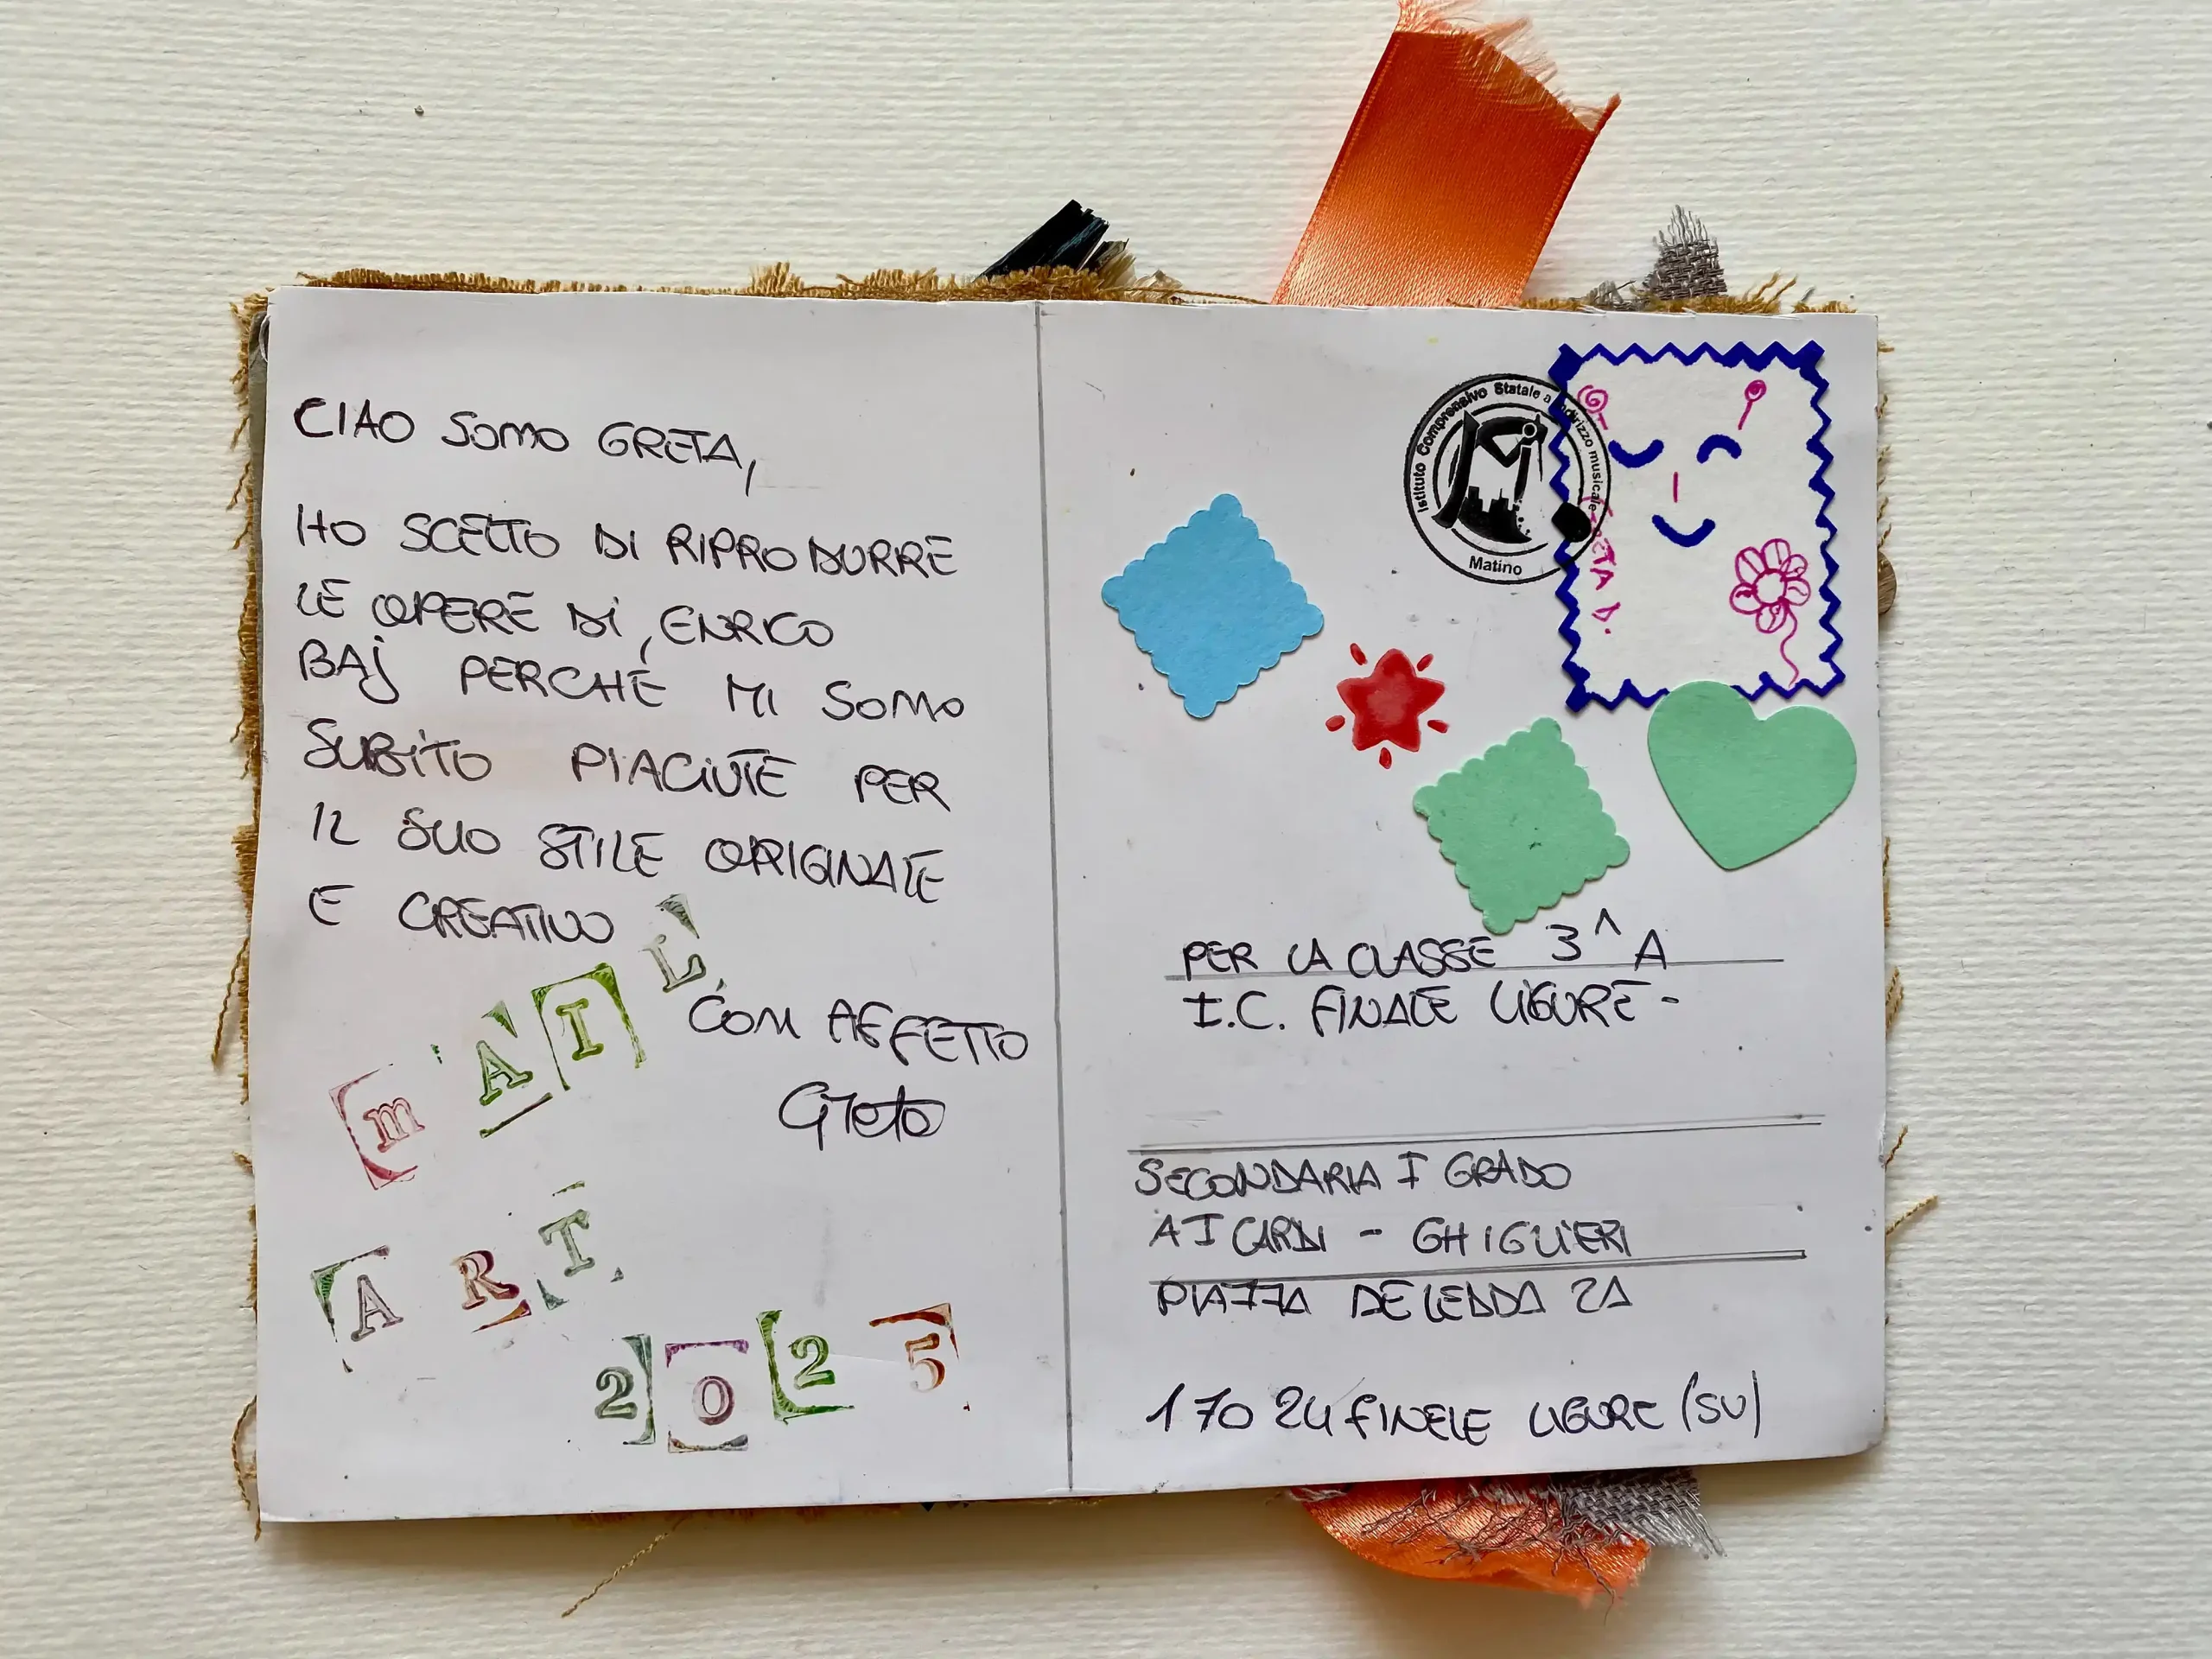 CIAO SONO GRETA,
HO SCELTO DI RIPRODURRE
LE OPERE DI ENRICO
BAJ PERCHÉ MI SONO
SUBITO PIACIUTE PER
IL SUO STILE ORIGINALE
E CREATIVO
CON AFFETTO
Greta
mAIL
ART
2025
Istituto Comprensivo Statale a indirizzo musicale
Matino
GRETA D.
PER LA CLASSE 3^A
I.C. FINALE LIGURE -
SECONDARIA I GRADO
AICARDI - GHIGLIERI
PIAZZA DELEDDA 2A
17024 FINELE LIGURE (SV)